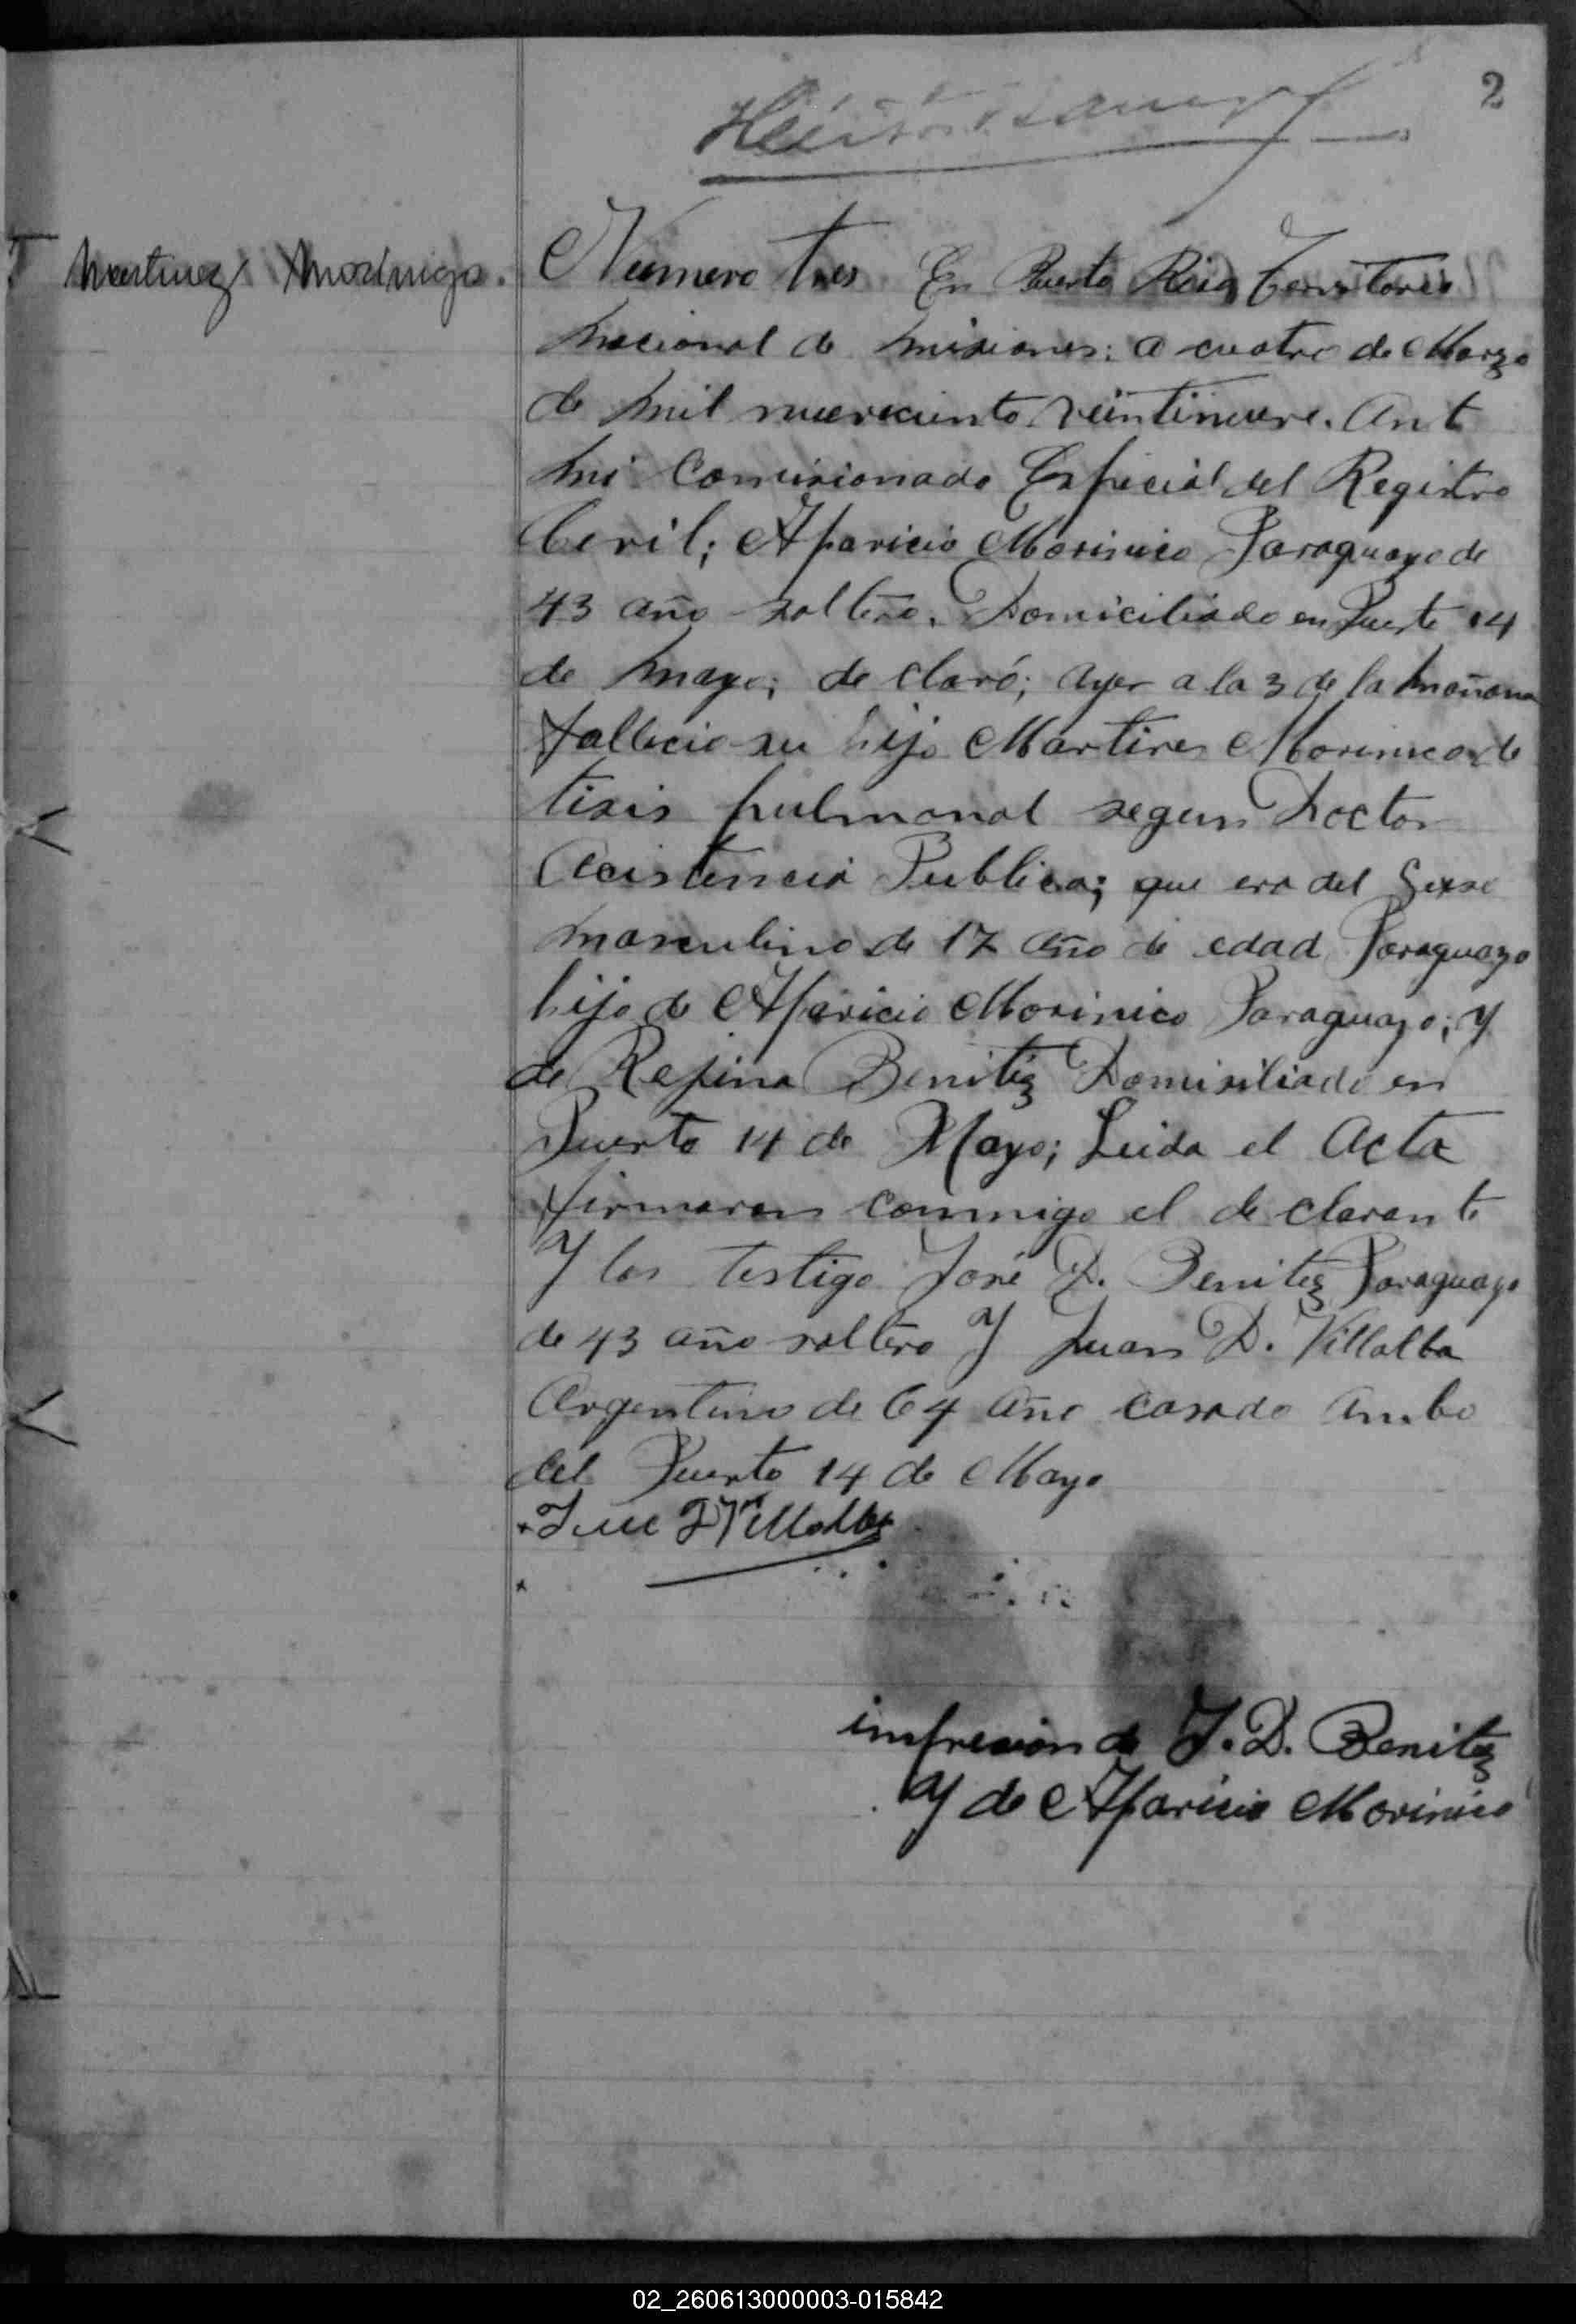 2
Martinez Morinigo.
Numero tres En Puerto Rico Territorio
nacional de misiones: a cuatro de Marzo
de mil nuereciento veintinuere. Ant
mi Comisionado Especial del Registro
Ceril; Aparicio Morinico Paraguayo de
43 año soltero. Domiciliado en Puerto 14
de mayo; de claró; ayer a la 3 de la mañana
fallecio su hijo Martires Morinico de
tisis pulmonal segun Doctor
Acistencia Publica; que era del Sexso
masculino de 17 año de edad Paraguayo
hijo de Aparicio Morinico Paraguayo; y
de Refina Benitez Domisiliado en
Puerto 14 de Mayo; Leida el Acta
firmaron conmigo el de clarante
Y los testigo José D. Benitez Paraguayo
de 43 año soltero Y Juan D. Villalba
Argentino de 64 año casado ambo
del Puerto 14 de Mayo
Villalba
impresion de J. D. Benitez
Y de Aparicio Morinico
02_260613000003-015842